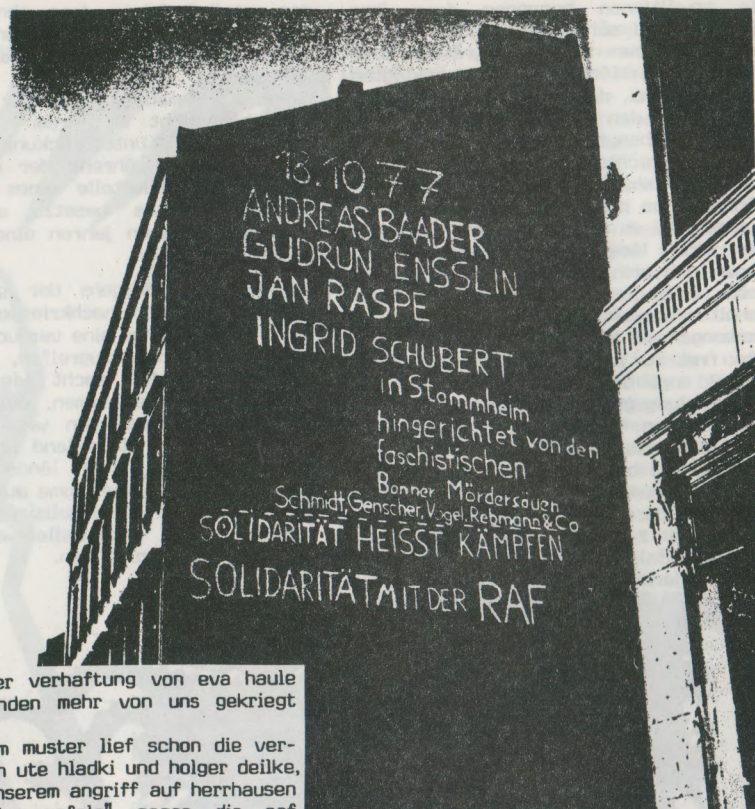 18.10.77
ANDREAS BAADER
GUDRUN ENSSLIN
JAN RASPE
INGRID SCHUBERT
in Stammheim
hingerichtet von den
faschistischen
Bonner Mördersäuen
Schmidt, Genscher, Vogel, Rebmann & Co
SOLIDARITÄT HEISST KÄMPFEN
SOLIDARITÄT MIT DER RAF
er verhaftung von eva haule
nden mehr von uns gekriegt
m muster lief schon die ver-
ute hladki und holger deilke,
nserem angriff auf herrhausen
gegen die raf